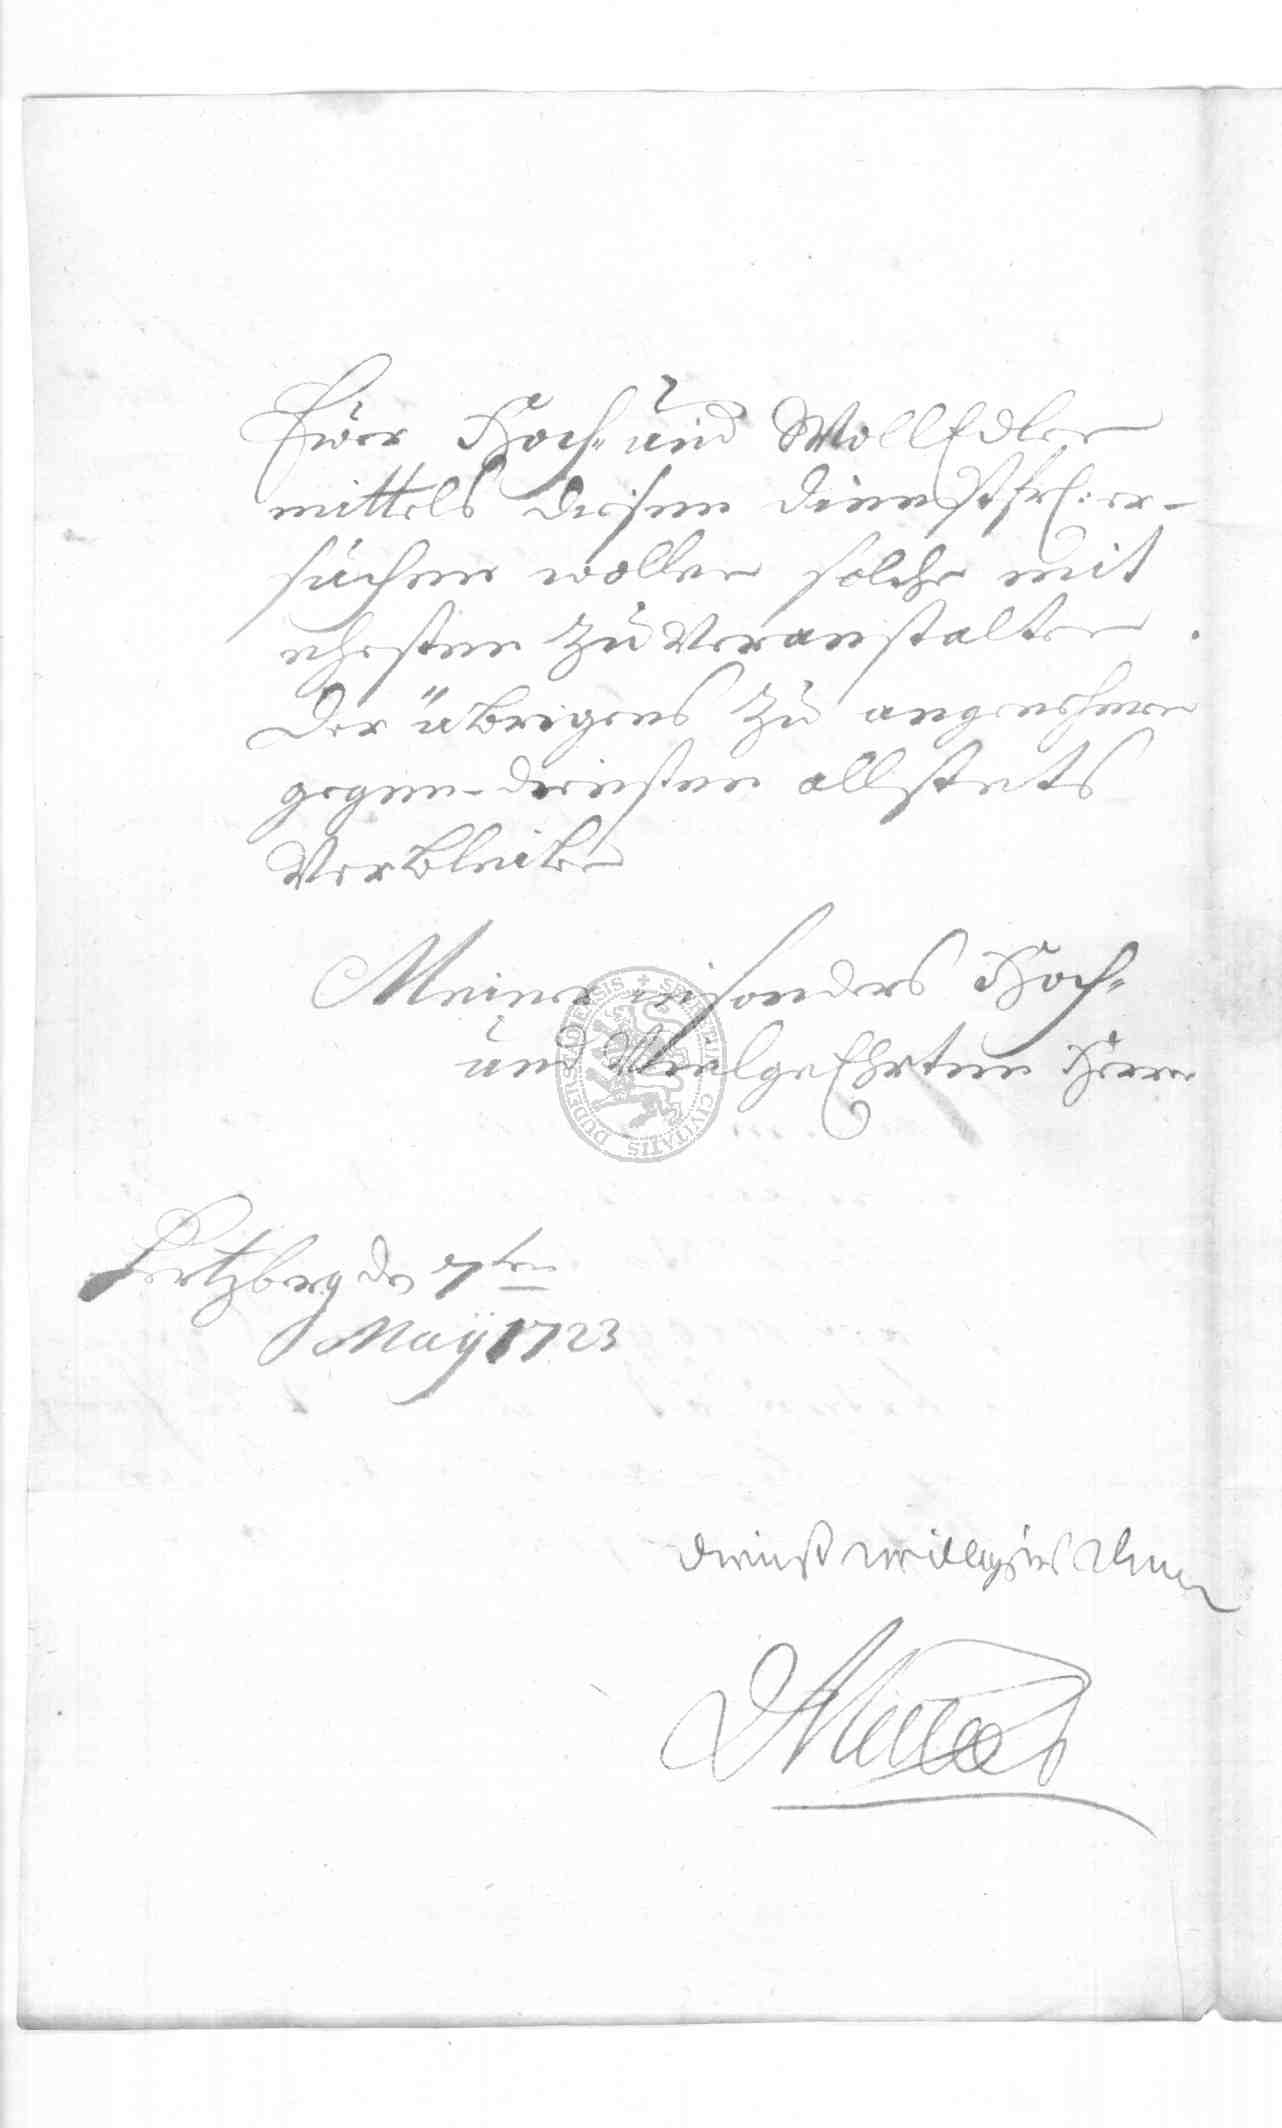 Eŵer Hoch- und WollEdlen
mittels diesem dienstfrl: er-
suchen wollen solche mit
ehesten zu Veranstalten.
Der übrigens zu angenehmen
gegen-diensten allstets
Verbleibe
Meiner insonders Hoch-
und VielgeEhrten Herrn
Hertzberg den 7ten
Maÿ 1723
dienstwilligster Diener
SIGILLUM CIVITATIS DUDERSTADENSIS